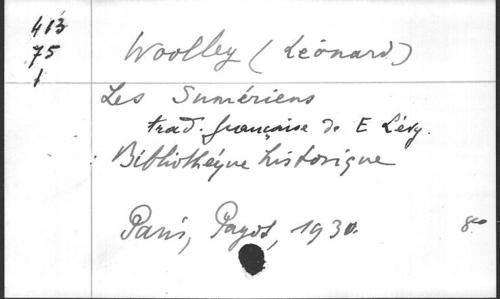 413
75
1
Woolley (Léonard)
Les Sumériens
trad. française de E Lévy.
Bibliothéque historique
Paris, Payot, 1930.
8°